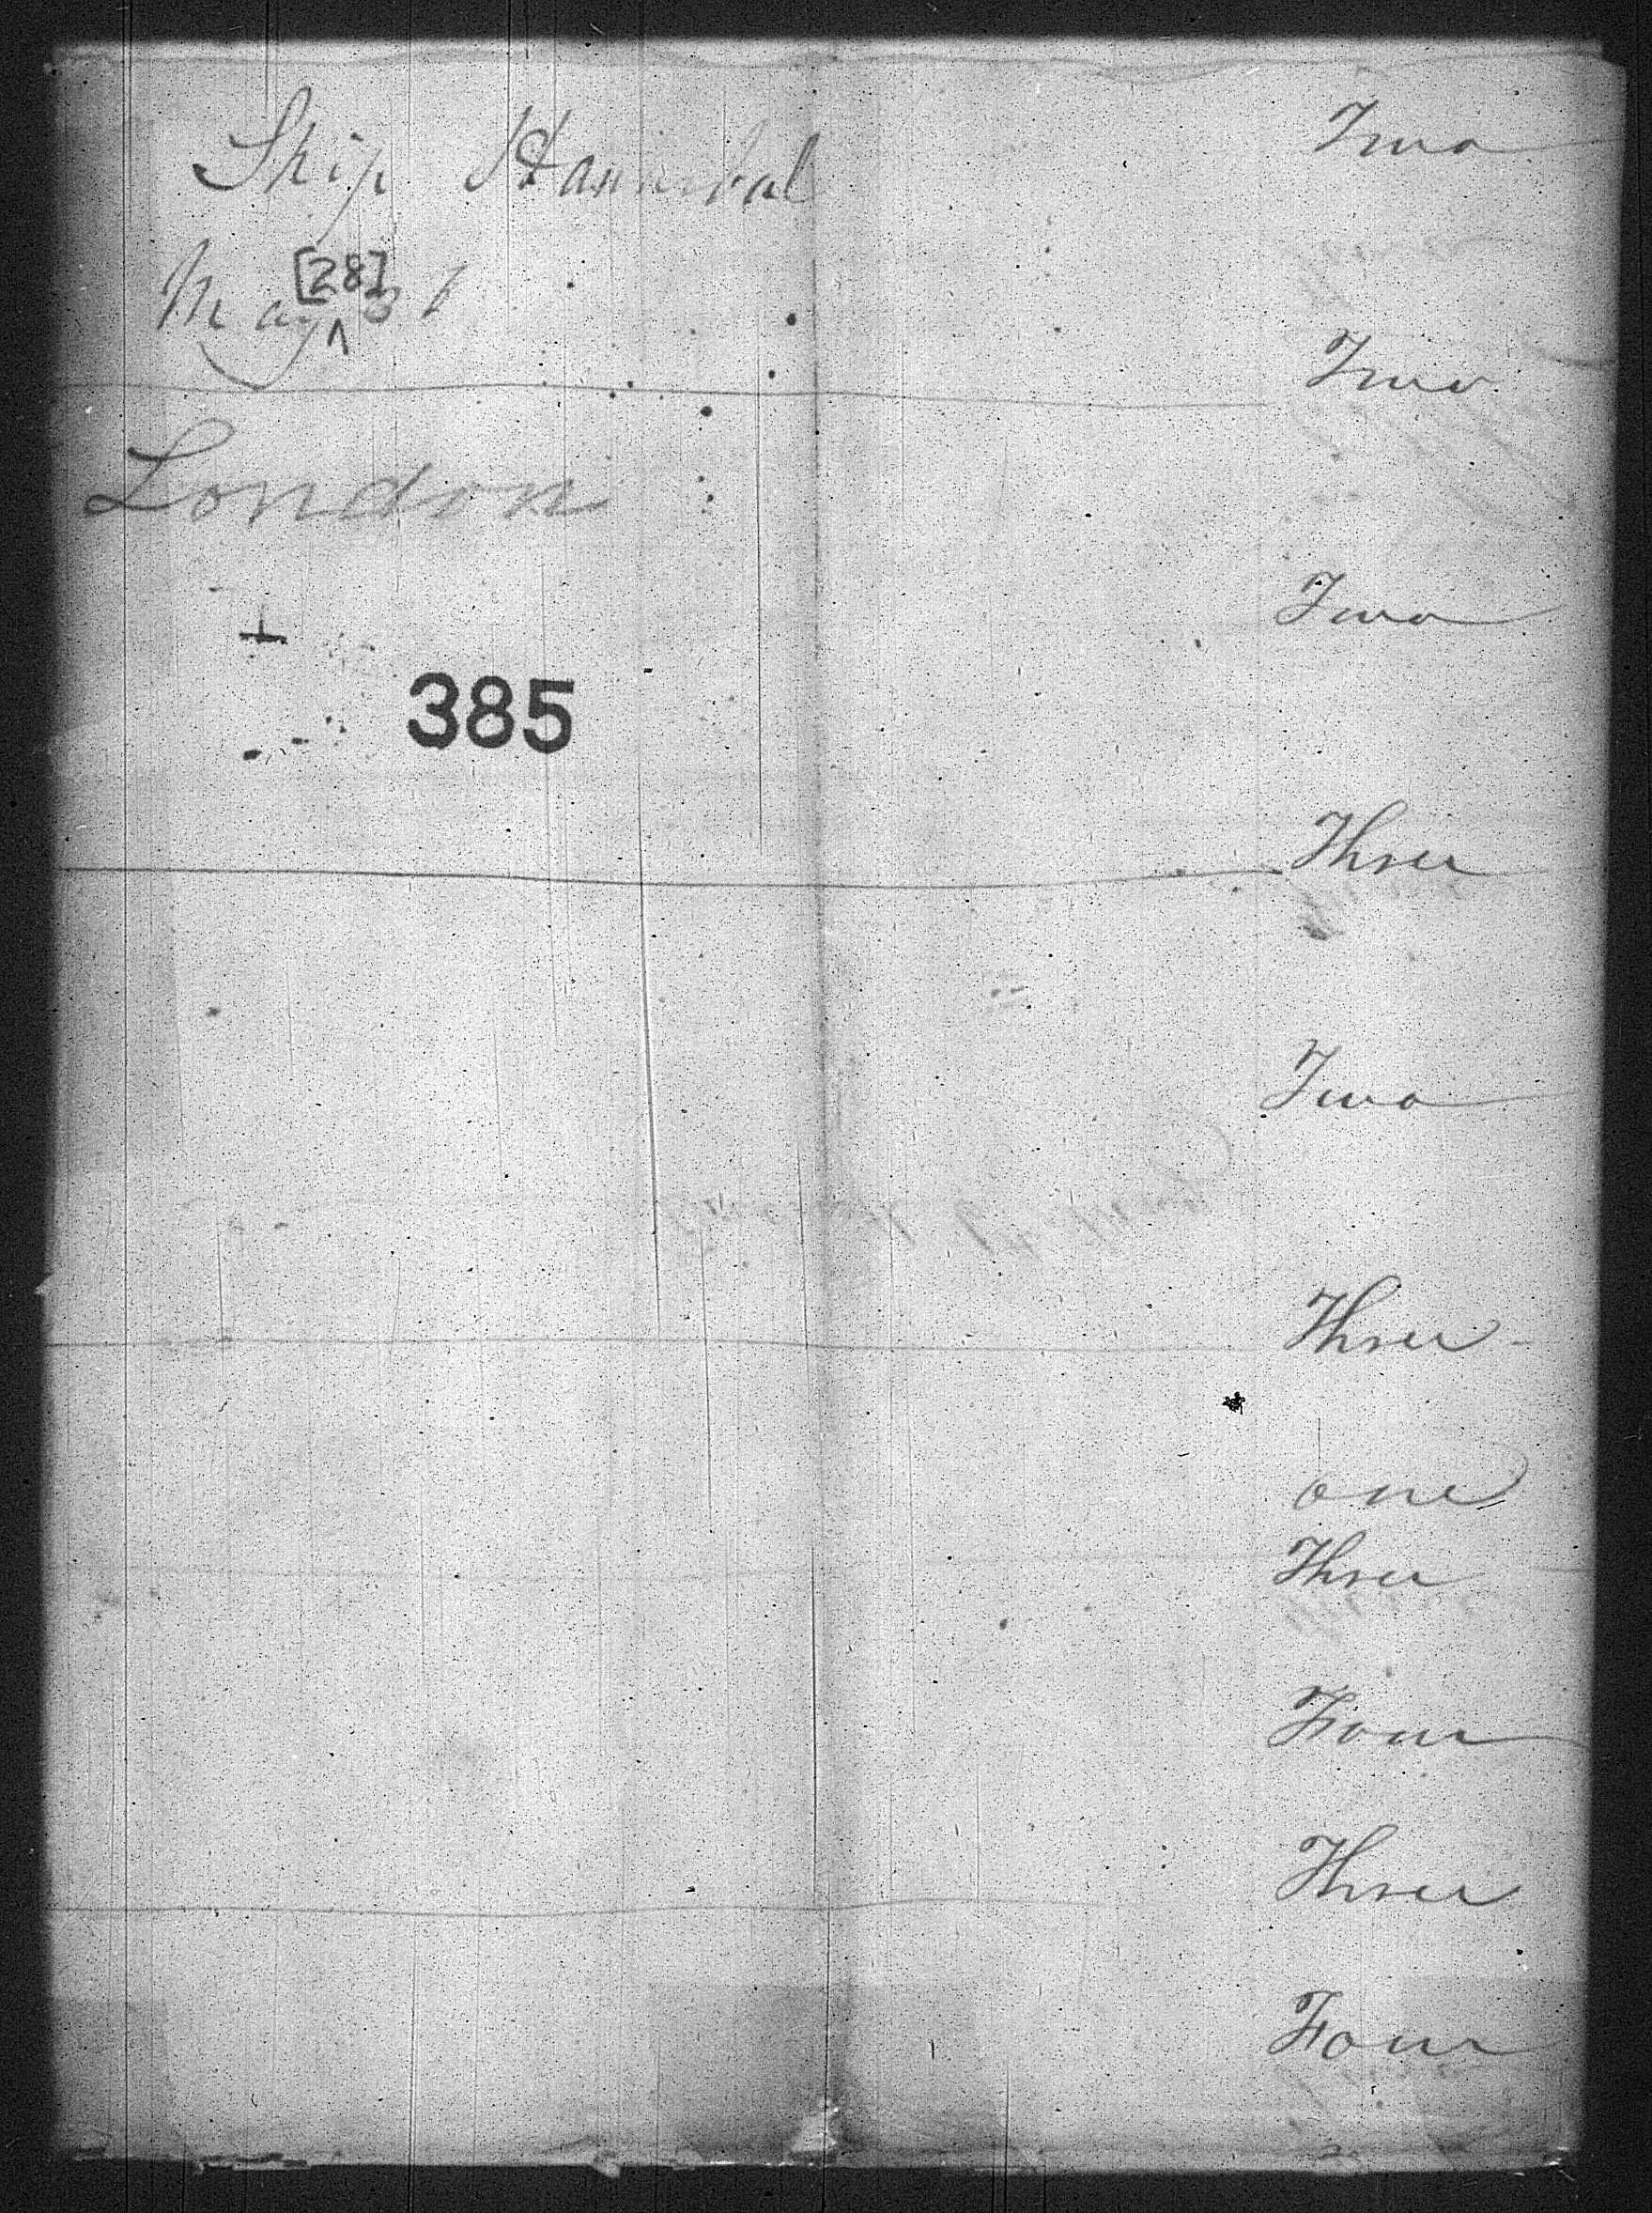 Ship Hannibal
May [28] 36
London
385
Two
Two
Two
Three
Two
Three
one
Three
Four
Three
Four